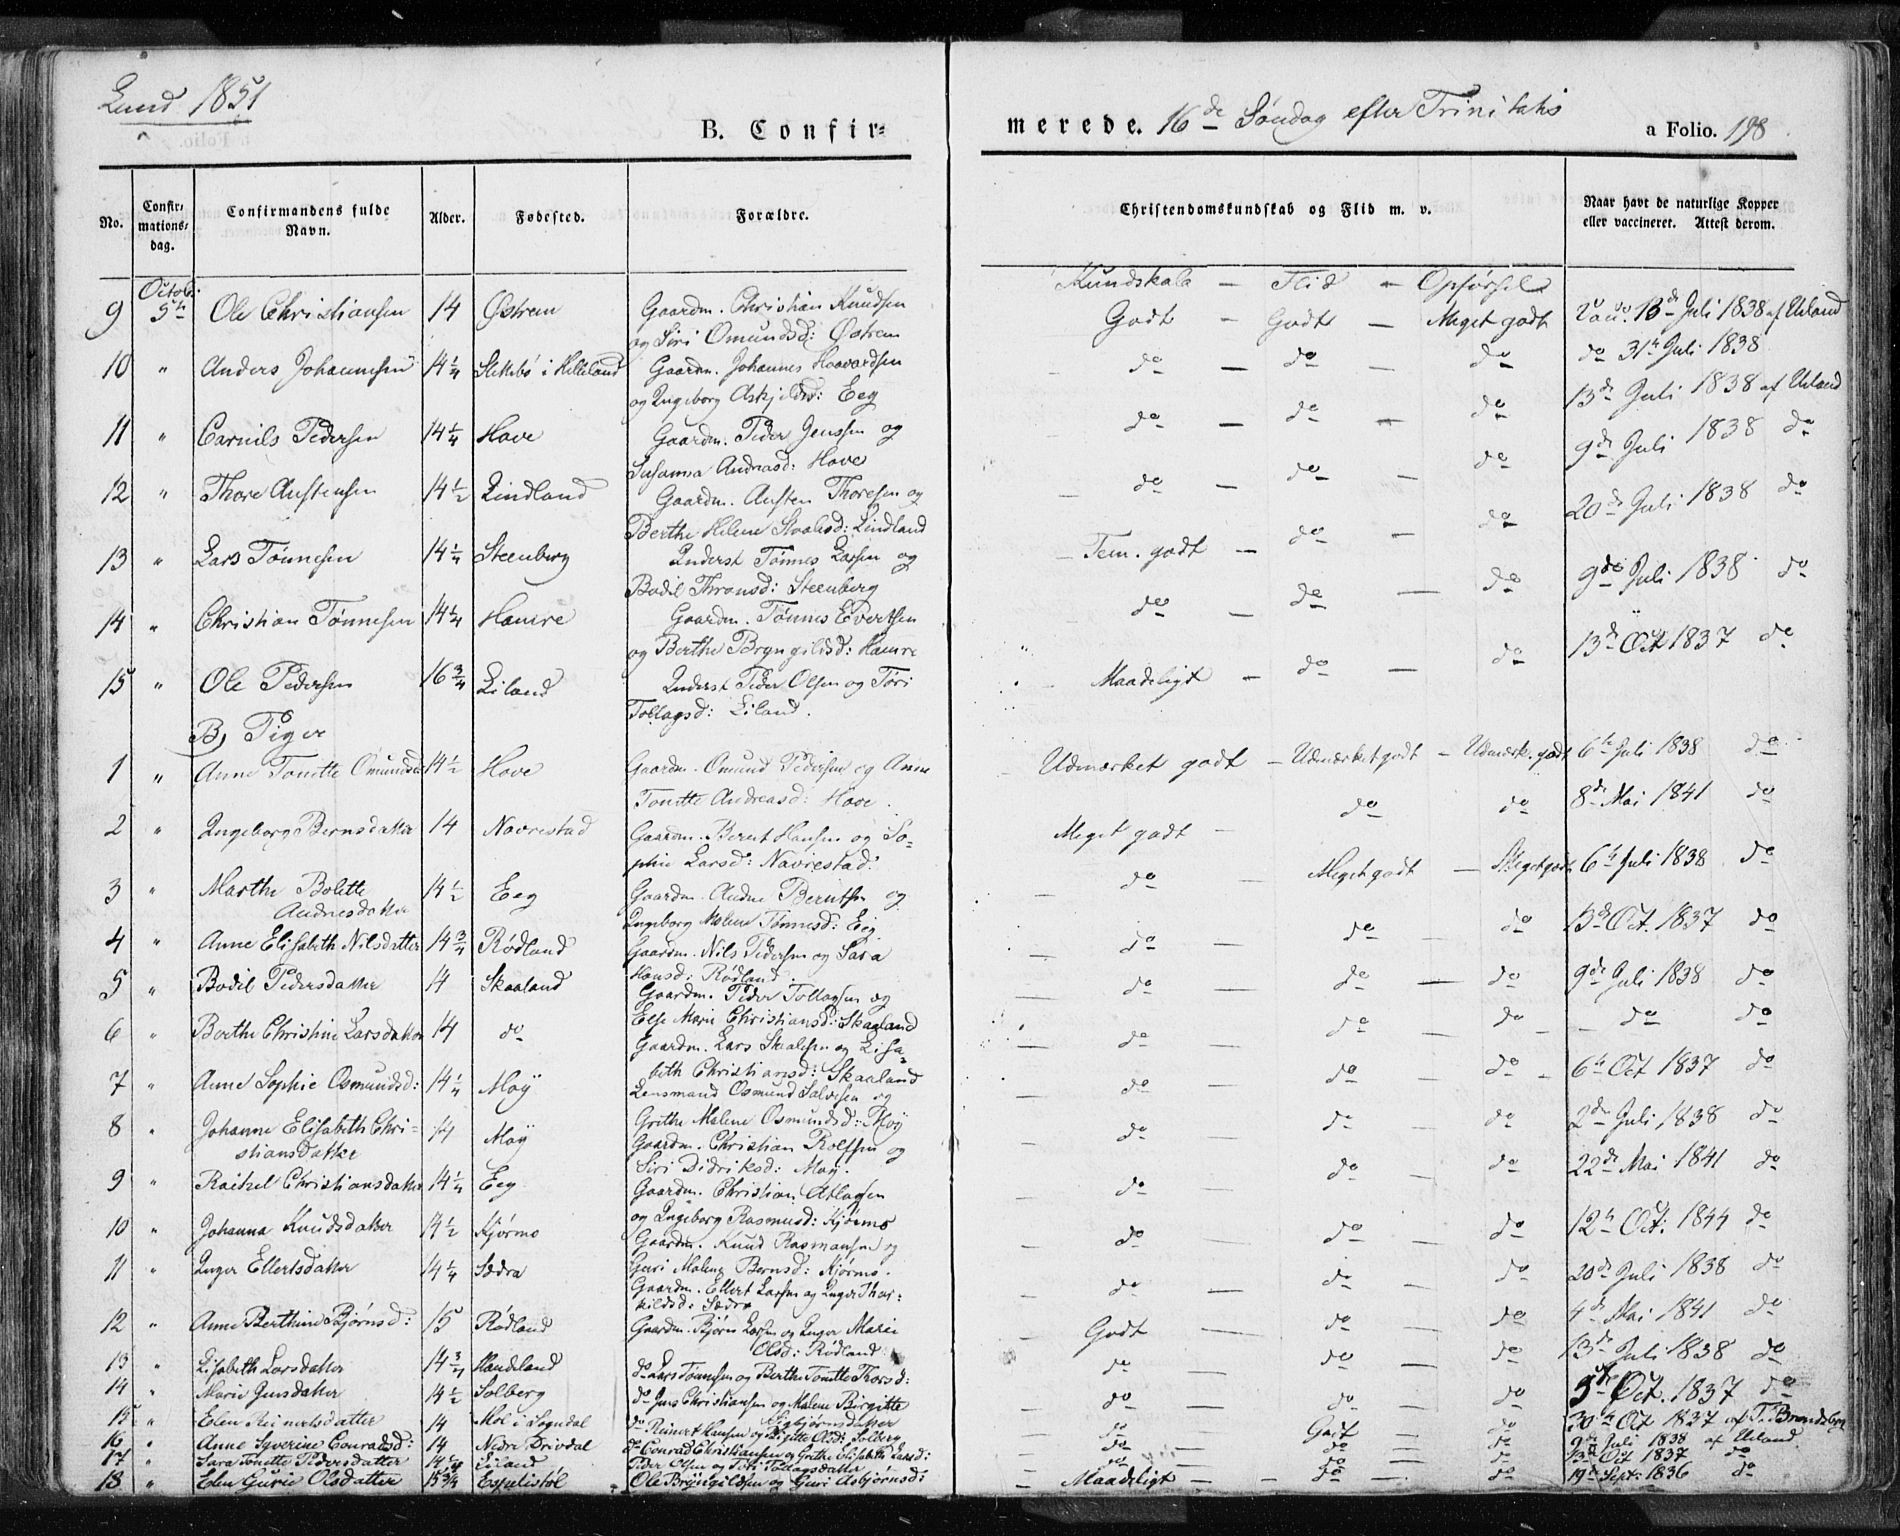 Lund 1851
B. Confir=
merede. 16de Søndag efter Trinitatis
a Folio. 198
No.
Confir-
mations-
dag.
Confirmandens fulde
Navn.
Alder.
Fødested.
Forældre.
Christendomskundskab og Flid m. v.
Naar havt de naturlige Kopper
eller vaccineret. Attest derom.
Kundskab — Flid — Opførsel
9 Octob. 5te Ole Christiansen 14 Østrem Gaardm. Christian Knudsen Godt — Godt — Meget godt Vacc. 13de Juli 1838 af Ueland
og Siri Omundsd: Østrem
10 " Anders Johannesen 14 1/4 i Helleland Gaardm. Johannes Haavardsen do — do — do do 31te Juli 1838
og Ingeborg Askjelsd: Eeg 13de Juli 1838 af Ueland
11 " Carnils Pedersen 14 1/4 Hove Gaardm. Peder Jenssen og do — do — do 9de Juli 1838 do
Susanna Andreasd: Hove
12 " Thore Austensen 14 1/2 Lindland Gaardm. Austen Thoresen og do — do — do 20de Juli 1838 do
Berthe Helene Skaalesd: Lindland
13 " Lars Tønnesen 14 1/4 Steenberg Inderst Tønnes Larsen og Tem. godt — do — do 9de Juli 1838 do
Bodil Thronsd: Steenberg
14 " Christian Tønnesen 14 1/4 Hamre Gaardm. Tønnes Evertsen do — do — do 13de Oct 1837 do
og Berthe Bryngilsd: Hamre
15 " Ole Pedersen 16 3/4 Eiland Inderst Peder Olsen og Tori Maadeligt — do — do
Tollagsd: Eiland.
B, Piger
1 " Anne Tonette Omundsd 14 1/2 Hove Gaardm. Omund Pedersen og Anne Udmærket godt — Udmærket godt — Udmærk. godt 6te Juli 1838 do
Tonette Andreasd: Hove.
2 " Ingeborg Berntsdatter 14 Navrestad Gaardm. Bernt Hansen og So= Meget godt — do do 8de Mai 1841 do
phie Larsd: Navrestad
3 " Marthe Bolette 14 1/2 Eeg Gaardm. Audne Berntsen og do Meget godt — Meget godt 6te Juli 1838 do
Audnesdatter
Ingeborg Malene Tønnesd: Eeg
4 " Anne Elisabeth Nilsdatter 14 3/4 Rødland Gaardm. Nils Pedersen og Sara do — do — do 13de Oct. 1837 do
Hansd: Rødland.
5 " Bodil Pedersdatter 14 Skaaland Gaardm. Peder Tollagsen og do — do — do 9de Juli 1838 do
Else Marie Christiansd: Skaaland
6 " Berthe Christine Larsdatter 14 do Gaardm. Lars Skaalesen og Elisa= do — do — do — do do
beth Christiansd: Skaaland
7 " Anne Sophie Osmundsd: 14 1/4 Moÿ Lensmand Osmund Salvesen og do — do — do 6te Oct 1837 do
Grethe Malene Osmundsd: Moÿ
8 " Johanne Elisabeth Chri= 14 Moÿ Gaardm. Christian Rolfsen og do — do — do 2den Juli 1838 do
stiansdatter
Siri Didriksd: Moy.
9 " Raikel Christiansdatter 14 1/4 Eeg Gaardm. Christian Atlagsen do — do — do 22de Mai 1841 do
og Ingeborg Rasmusd: Kjørmo
10 " Johanna Knudsdatter 14 1/2 Kjørmo Gaardm. Knud Rasmussen og do — do — do 12te Oct: 1844 do
Guri Malene Berntsd: Kjørmo.
11 " Inger Ellertsdatter 14 1/4 Sædra Gaardm. Ellert Larsen og Inger Thor= do — do — do 20de Juli 1838 do
kildsd: Sædra
12 " Anne Berthine Bjørnsd: 15 Rødland Gaardm. Bjørn Larsen og Inger Marie Godt — do — do 4de Mai 1841 do
Olsd: Rødland
13 " Elisabeth Larsdatter 14 3/4 Handeland do Lars Tønnesen og Berthe Tonette Thorsd: do — do — do 13de Juli 1838 do
14 " Marie Jensdatter 14 1/2 Solberg do Jens Christiansen og Malene Birgitte do — do — do 5te Oct. 1837 do
Sigbjørnsdatter
15 " Elen Reinertsdatter 14 Moi i Sogndal do Reinert Hansen og Olsd: Solberg do — Godt — do 30te Oct 1837 af T. Brandsberg
16 " Anne Syverine Conradsd: 14 Nedre Drivdal do Conrad Christiansen og Grethe Elisabeth Larsd: do — do — do 9de Juli 1838 af Ueland
17 " Sara Tonette Pedersdatter 14 Eiland Peder Olsen og Tori Tollagsdatter do — do — do 13de Oct 1837 do
18 " Elen Gurie Olsdatter 15 3/4 Espelistøl Ole Bryngildsen og Guri Asbjørnsd: — Maadeligt — — do — do 19de Sept: 1836 do